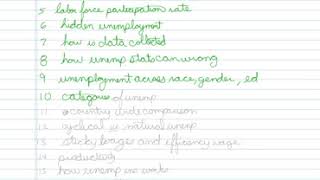 5 labor force participation rate
6 hidden unemployment
7 how is data collected
8 how unemp stats can wrong
9 unemployment across race, gender, ed
10 categories of unemp
11 country wide comparison
12 cyclical vs natural unemp
13 sticky wages and efficiency wage
14 productivity
15 how unemp ins works